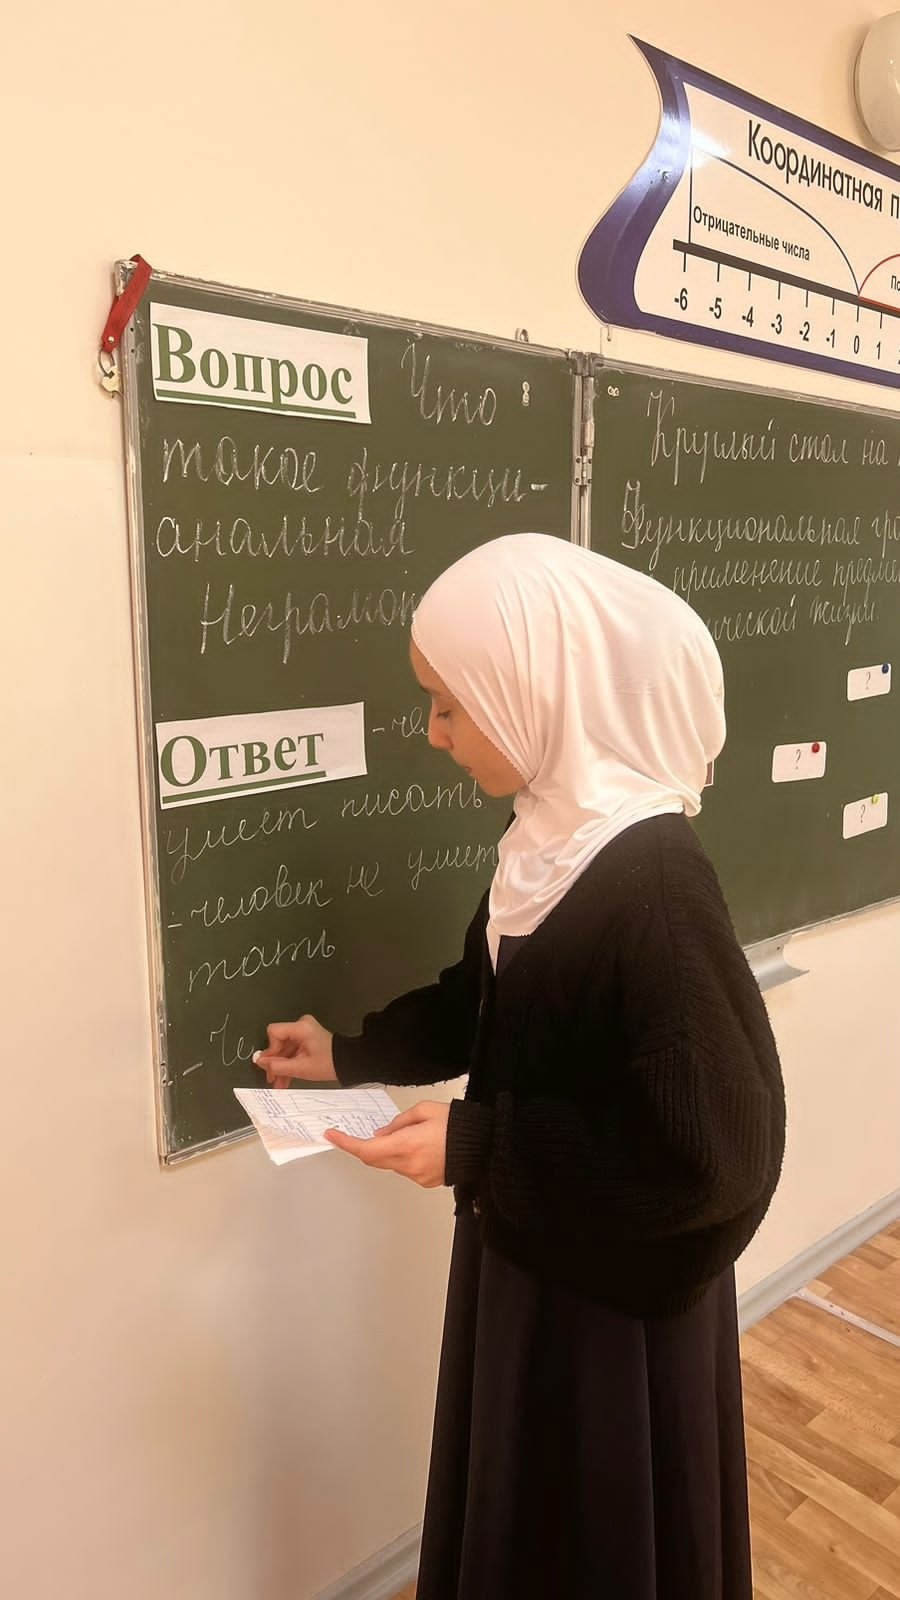 Координатная п
Отрицательные числа
По
-6 -5 -4 -3 -2 -1 0 1
Вопрос Что
такое функци-
анальная
Неграмот
Ответ - чел
умеет писать
- человек не умеет
тать
- Че
Круглый стол на
Функциональная гра
применение предме
ической жизни.
?
?
?